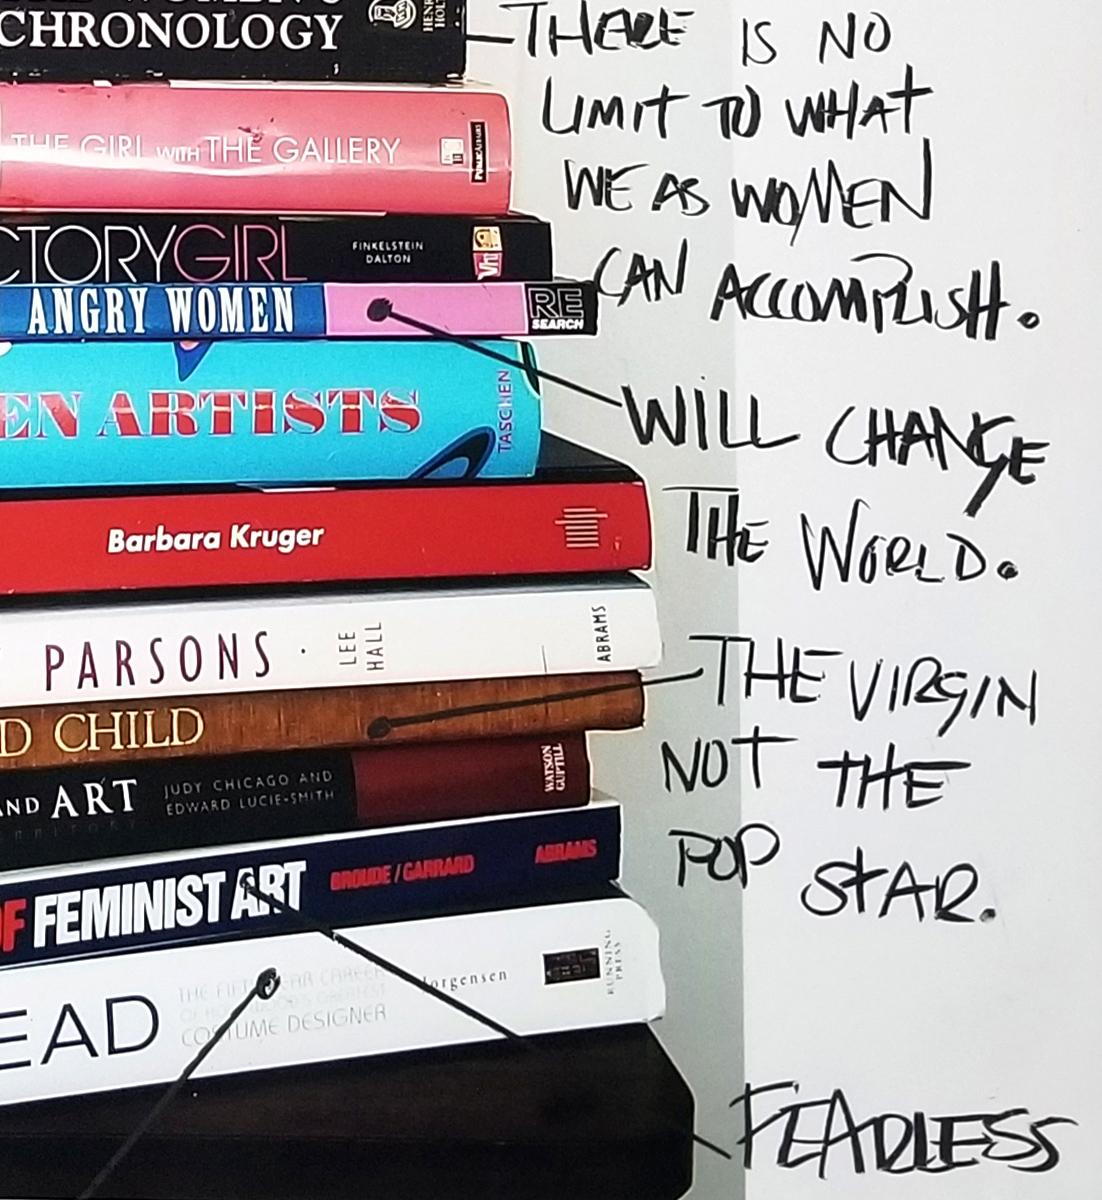 CHRONOLOGY
THERE IS NO
LIMIT TO WHAT
WE AS WOMEN
CAN ACCOMPLISH.
THE GIRL WITH THE GALLERY
PUBLICAFFAIRS
CTORYGIRL
FINKELSTEIN
DALTON
ANGRY WOMEN
RE
SEARCH
WILL CHANGE
THE WORLD.
EN ARTISTS
TASCHEN
Barbara Kruger
PARSONS · LEE
HALL
ABRAMS
THE VIRGIN
NOT THE
POP STAR.
D CHILD
AND ART
JUDY CHICAGO AND
EDWARD LUCIE-SMITH
WATSON
GUPTILL
OF FEMINIST ART BROUDE / GARRARD ABRAMS
EAD
COSTUME DESIGNER
Jorgensen
RUNNING
PRESS
FEARLESS